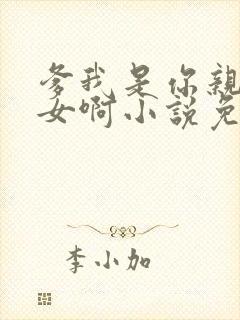 爹我是你親
女啊小說免
李小加